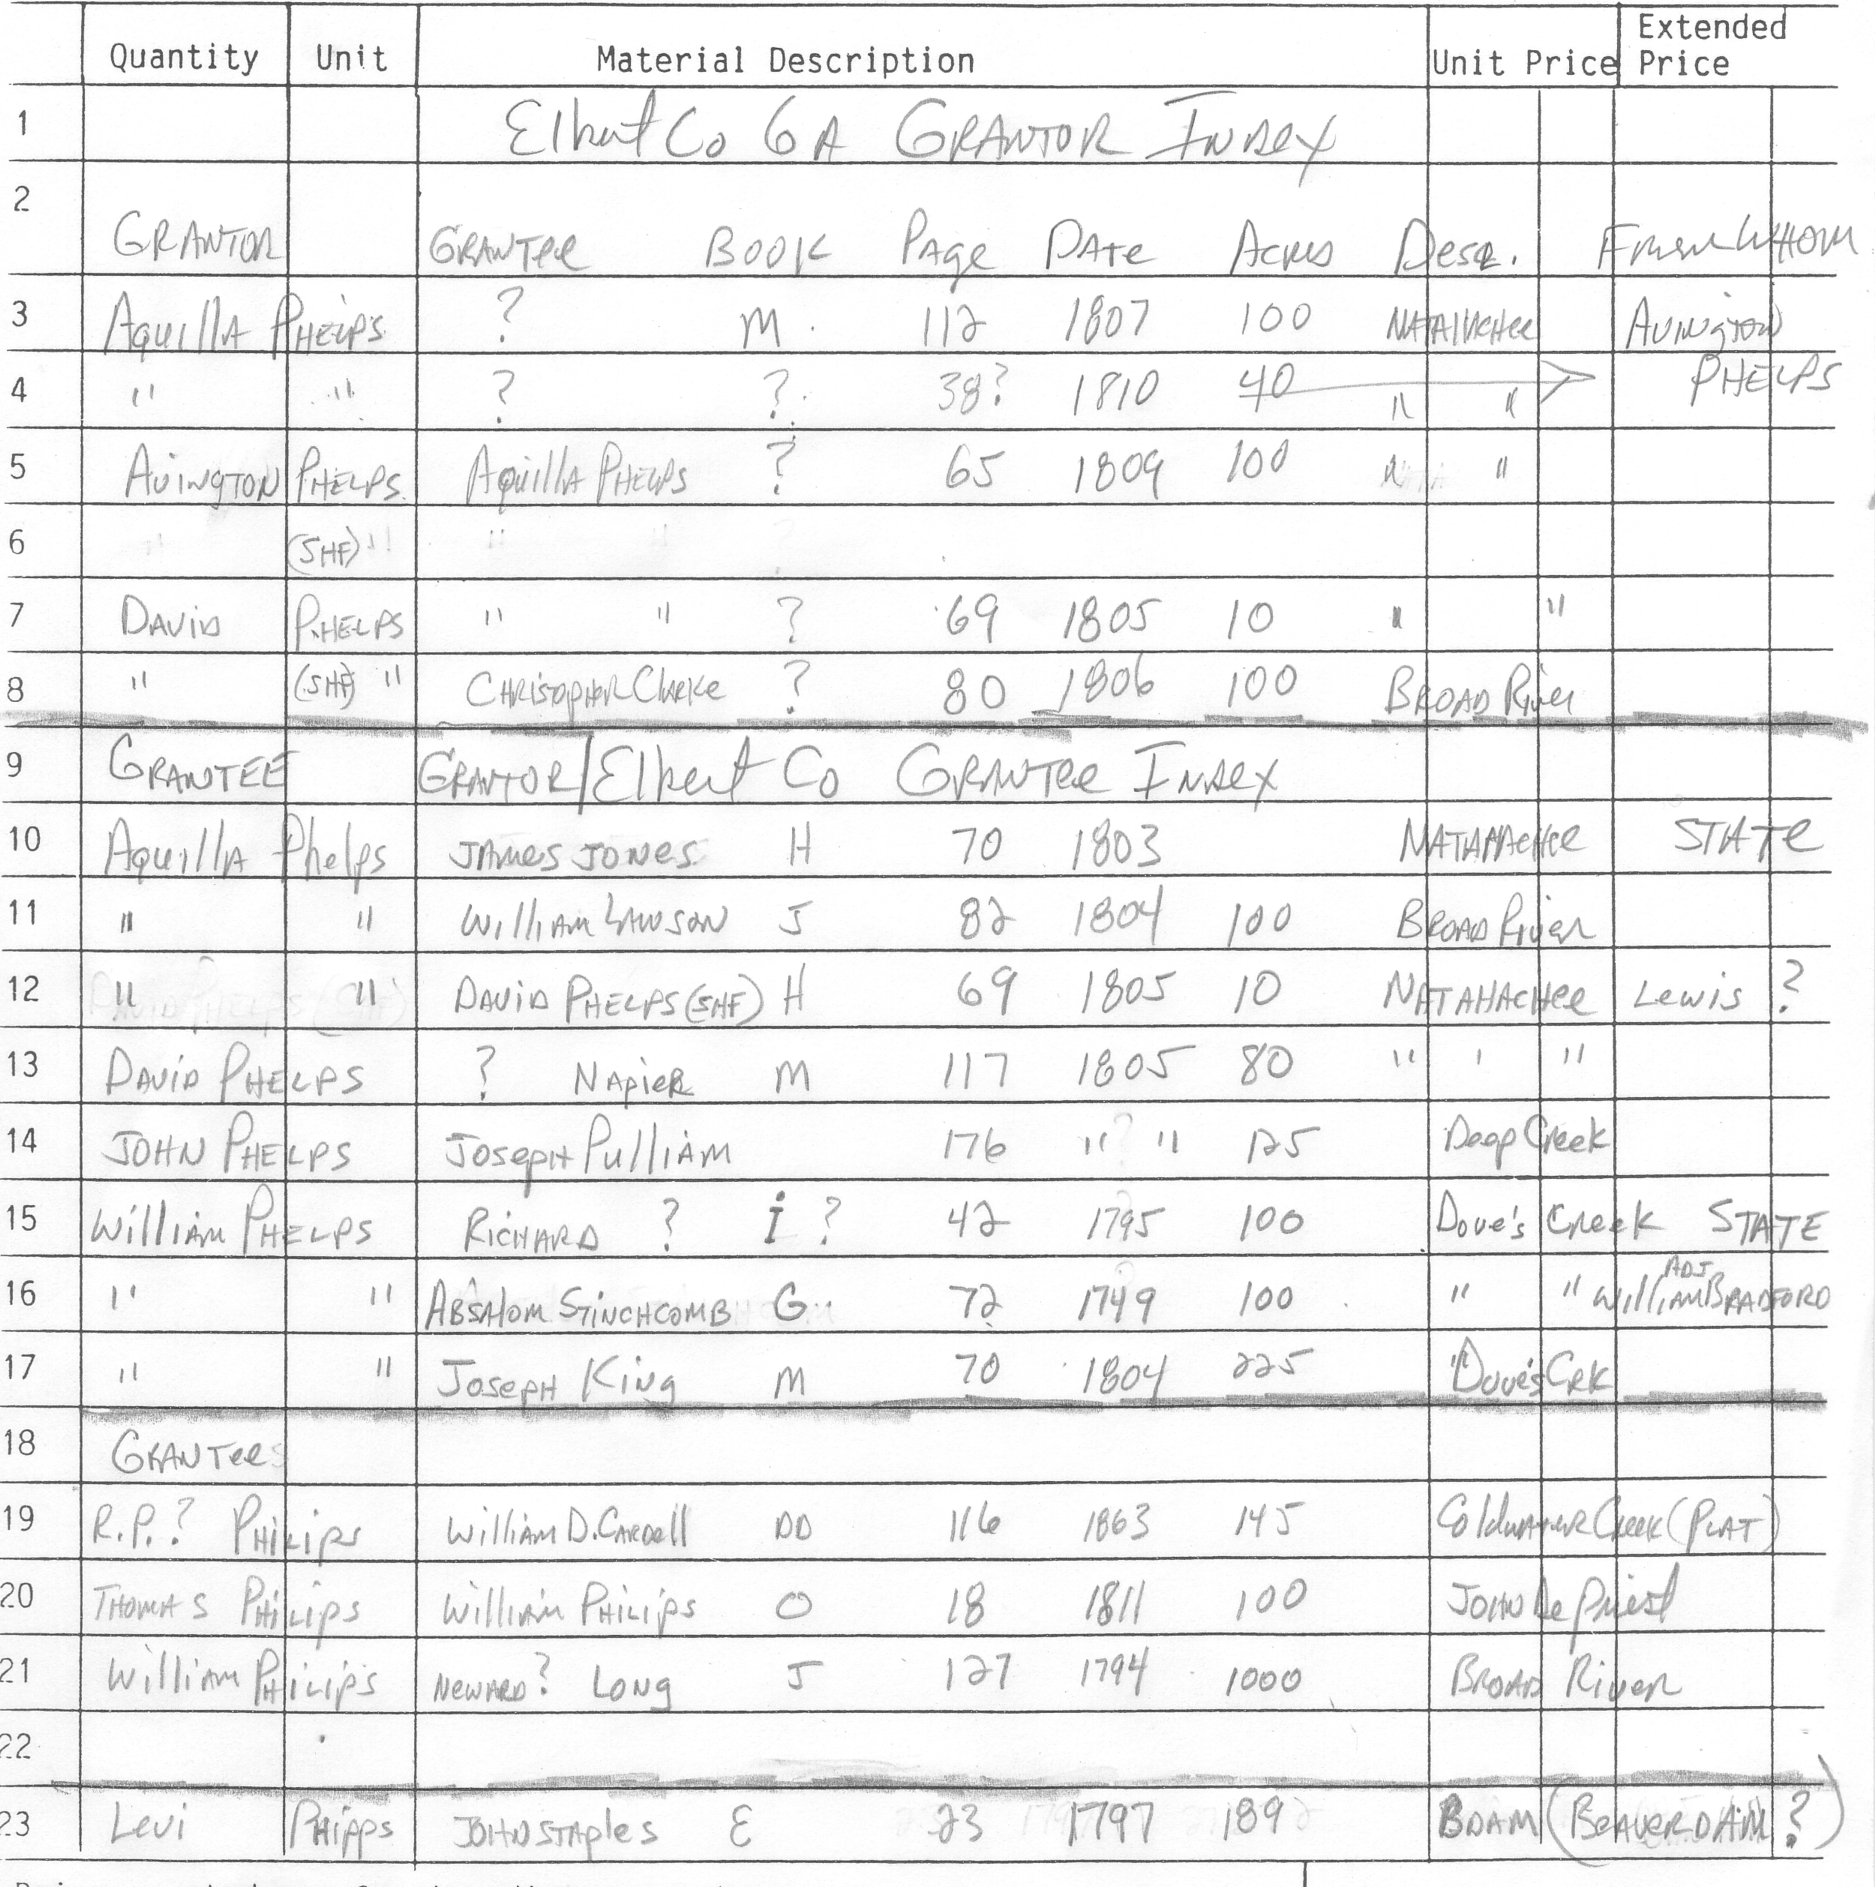 Quantity Unit Material Description Unit Price Extended Price
1 Elbert Co GA GRANTOR INDEX
2 GRANTOR GRANTEE BOOK PAGE DATE ACRES DESC. From WHOM
3 Aquilla PHELPS ? M. 112 1807 100 AVINGTON
4 " " ? ? 38? 1810 40 " " PHELPS
5 AVINGTON PHELPS Aquilla PHELPS ? 65 1809 100 " "
6 (SHF) "
7 DAVID PHELPS " " ? 69 1805 10 " "
8 " (SHF) " CHRISTOPHER Clarke ? 80 1806 100 BROAD River
9 GRANTEE GRANTOR/Elbert Co GRANTEE INDEX
10 Aquilla Phelps JAMES JONES H 70 1803 NATAHACHEE STATE
11 " " William LAWSON J 82 1804 100 BROAD River
12 " " DAVID PHELPS (SHF) H 69 1805 10 NATAHACHEE Lewis ?
13 DAVID PHELPS ? NAPIER M 117 1805 80 " ' "
14 JOHN PHELPS JOSEPH PULLIAM 176 " ? " 125 Deep Creek
15 William PHELPS RICHARD ? I ? 42 1795 100 Dove's Creek STATE
16 " " ABSALOM STINCHCOMB G 72 1749 100 " " ADJ William BRADFORD
17 " " JOSEPH KING M 70 1804 225 " Dove's CRK
18 GRANTEES
19 R.P.? PHILIPS William D. DD 116 1863 145 Coldwater Creek (PLAT)
20 THOMAS PHILIPS William PHILIPS O 18 1811 100 JOHN DePriest
21 William PHILIPS NEWARD? LONG J 127 1794 1000 BROAD River
22
23 Levi PHIPPS JOHN STAPLES E 23 1797 189 BDAM (BEAVERDAM ?)